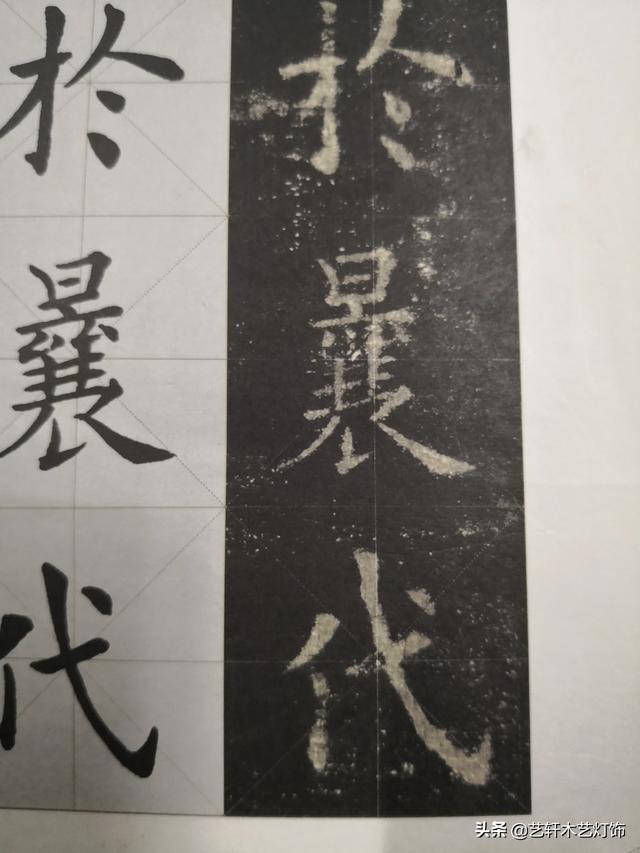 於曩代
於曩代
头条 @艺轩木艺灯饰